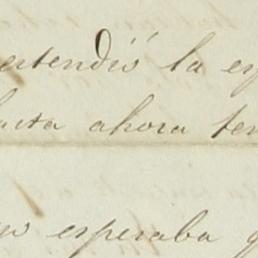 estendió la es
hasta ahora ten
esperaba q